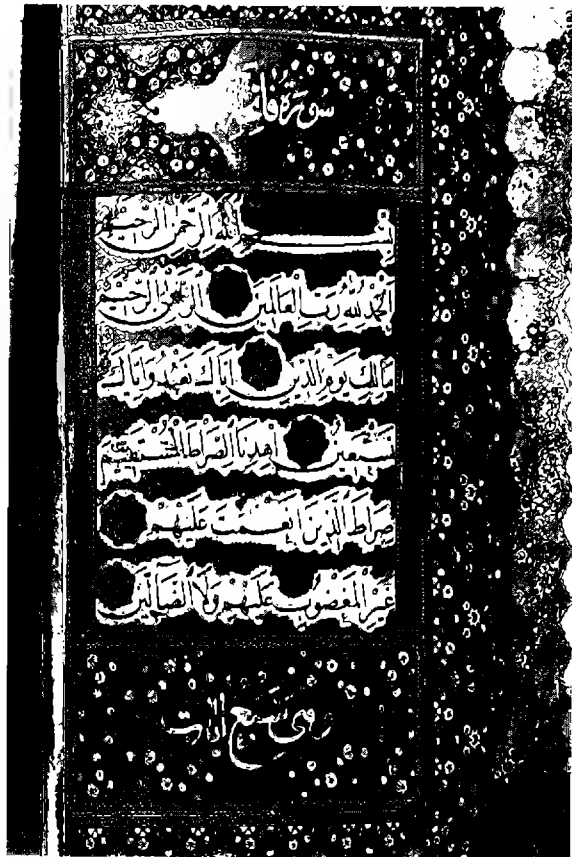 سُورَةُ فَا
بِسْمِ اللَّهِ الرَّحْمَٰنِ الرَّحِيمِ
الْحَمْدُ لِلَّهِ رَبِّ الْعَالَمِينَ الرَّحْمَٰنِ الرَّحِيمِ
مَالِكِ يَوْمِ الدِّينِ إِيَّاكَ نَعْبُدُ وَإِيَّاكَ
نَسْتَعِينُ اهْدِنَا الصِّرَاطَ الْمُسْتَقِيمَ
صِرَاطَ الَّذِينَ أَنْعَمْتَ عَلَيْهِمْ
غَيْرِ الْمَغْضُوبِ عَلَيْهِمْ وَلَا الضَّالِّينَ
وهى سبع ايات